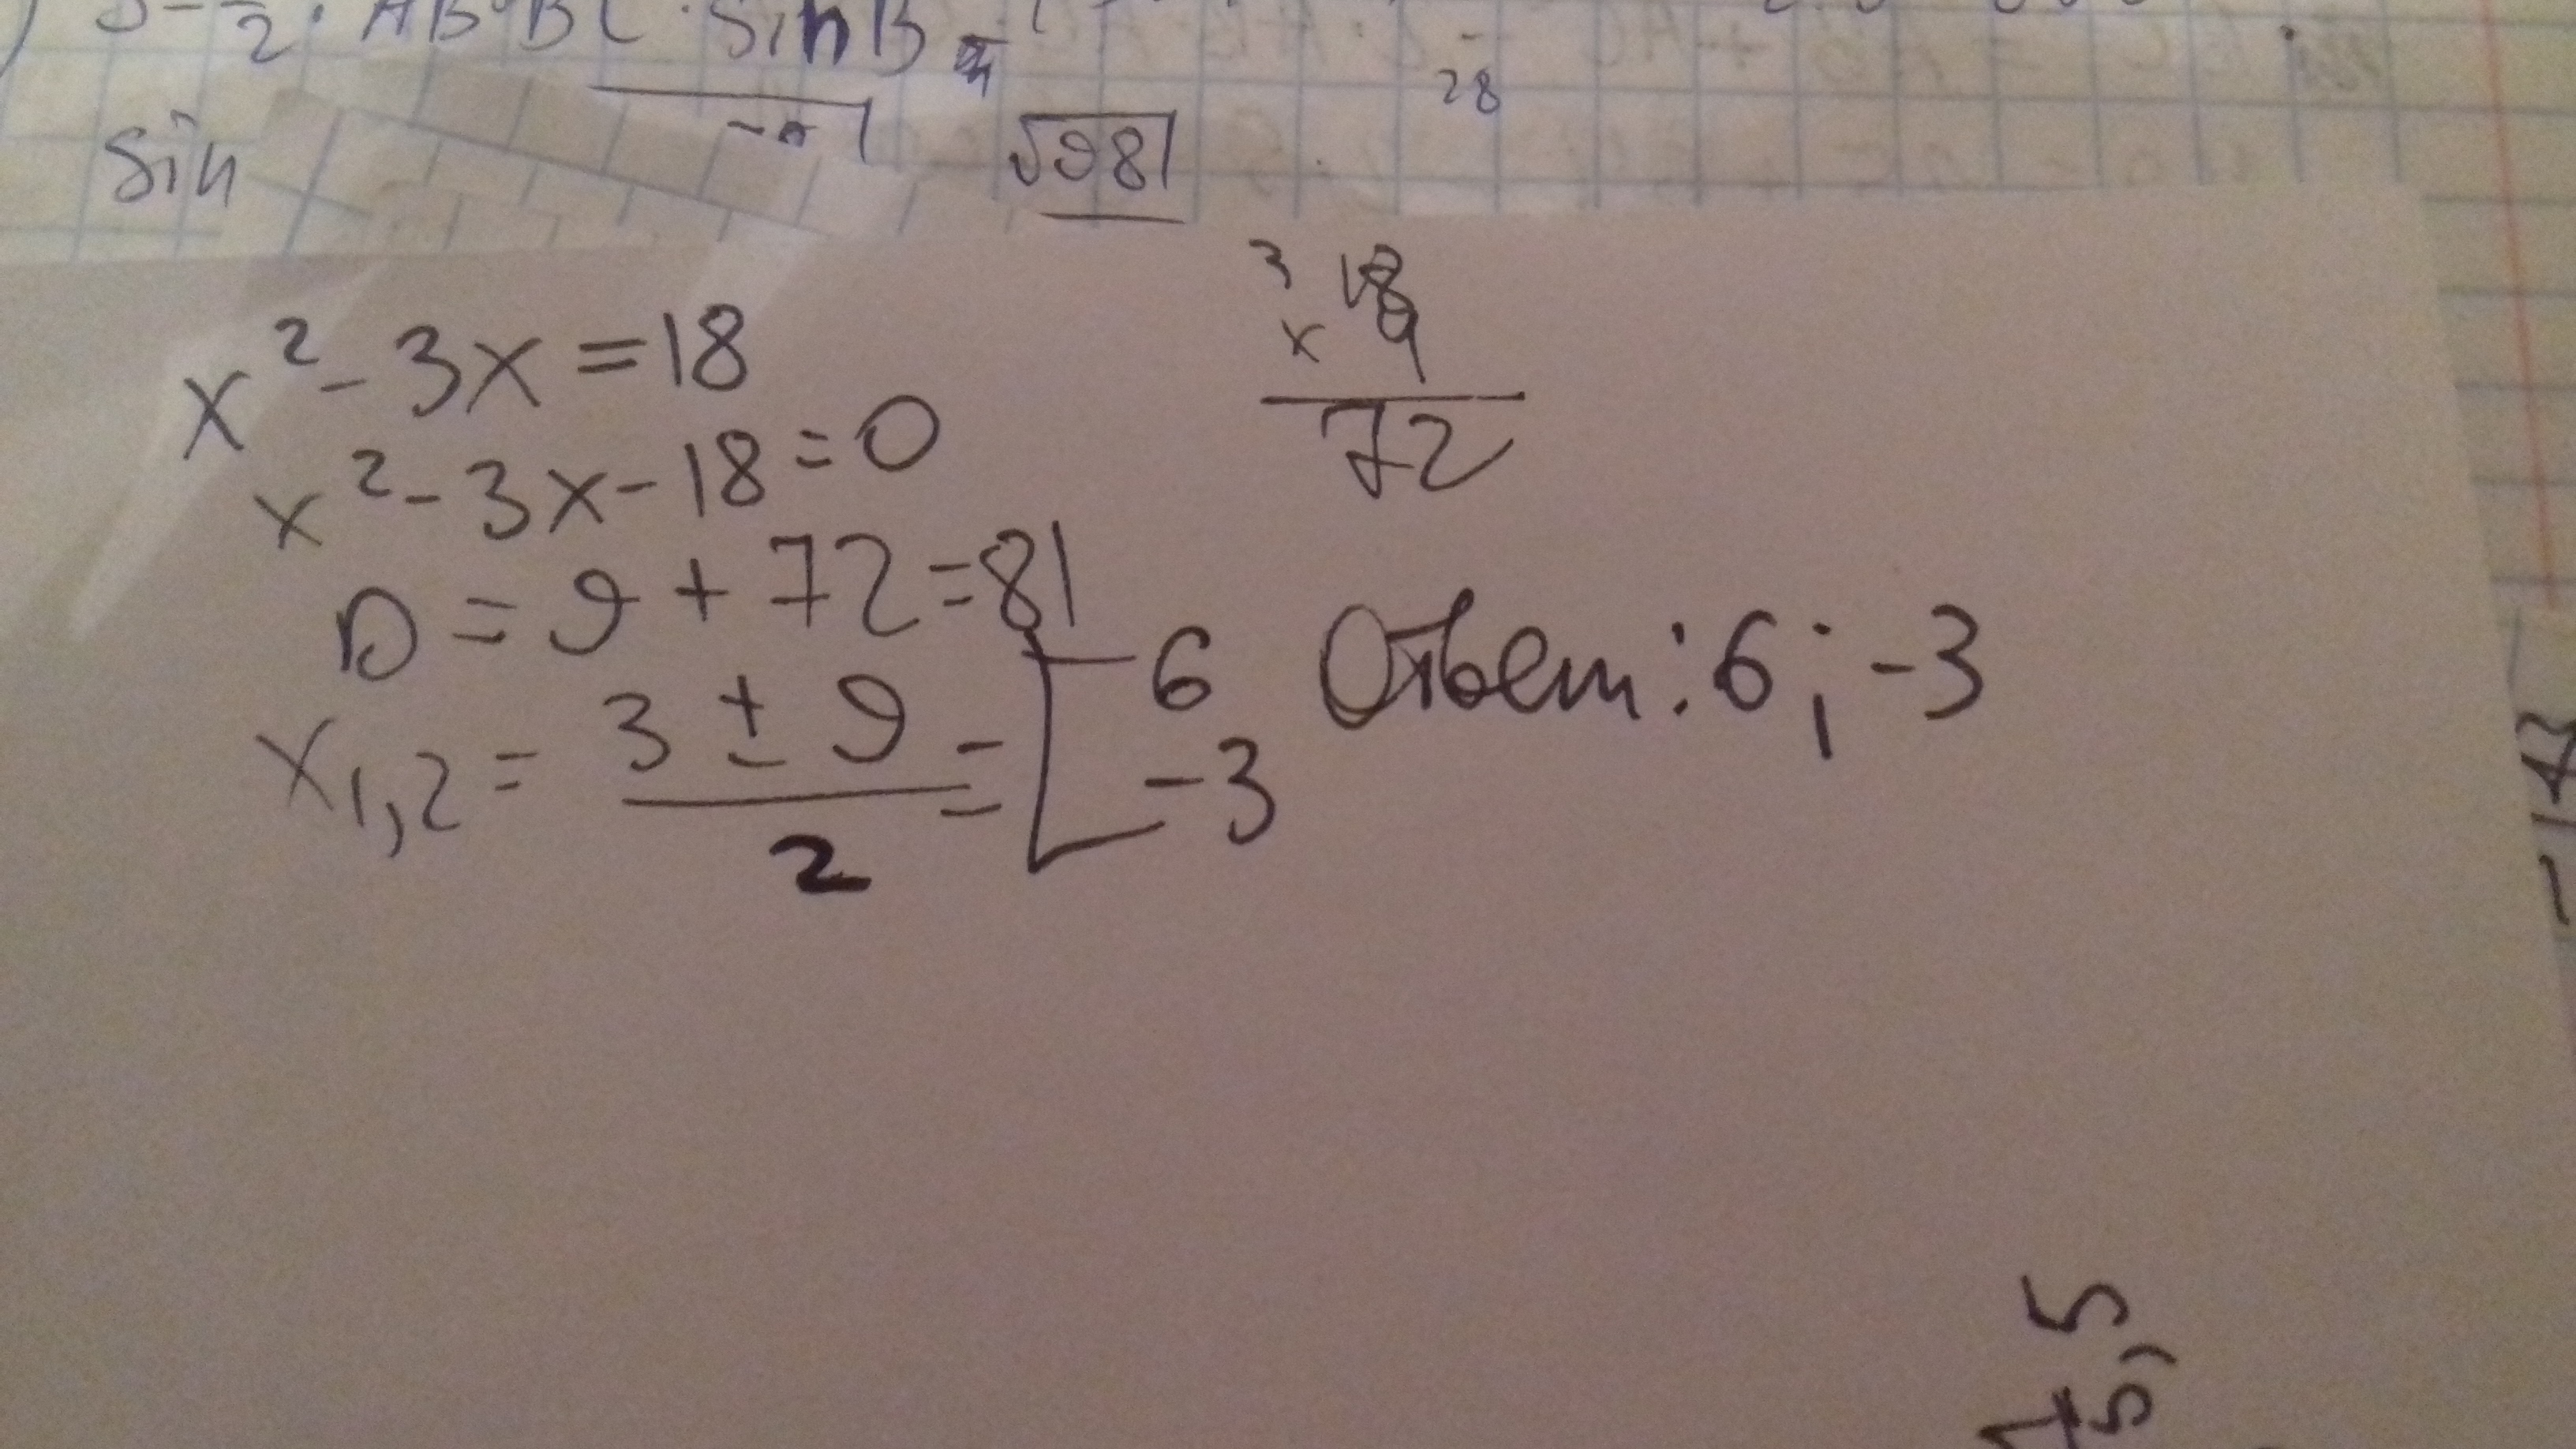 2 · AB · BC · sin B =
28
sin
√981
x² - 3x = 18
x² - 3x - 18 = 0
D = 9 + 72 = 81
x1,2 = (3 ± 9) / 2 = [ 6
-3
3 18
x 4
72
Ответ: 6; -3